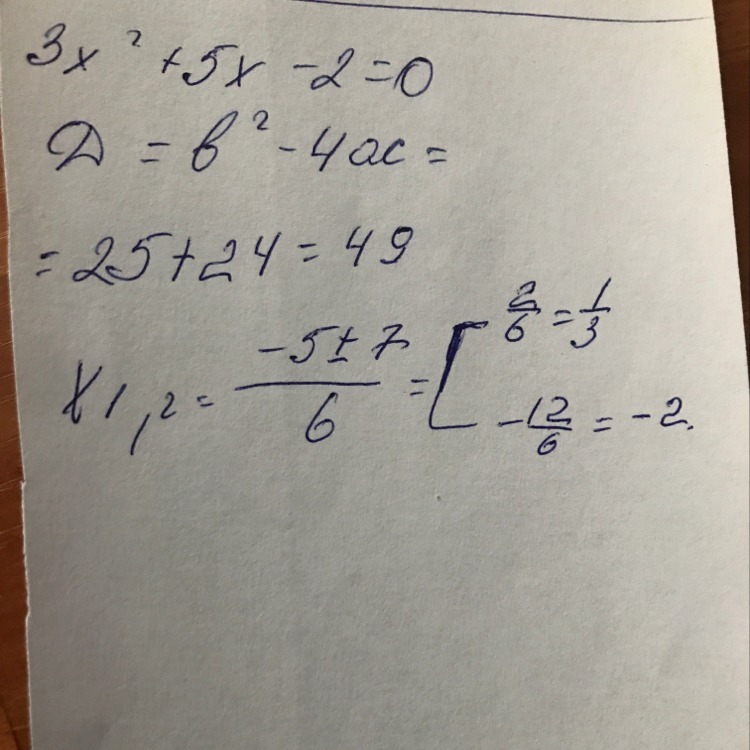 3x² + 5x - 2 = 0
D = b² - 4ac =
= 25 + 24 = 49
x1,2 = -5 ± 7 / 6 = [ 2/6 = 1/3
-12/6 = -2.